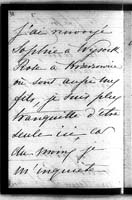 j'ai envoyé
Sophie à Wysock
Rose à Krzeszowice
où sont aussi mes
fils, je suis plus
tranquille d'être
seule ici, car
du moins je
m'inquiete